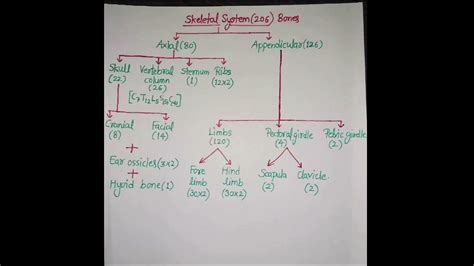 Skeletal System (206) Bones
Axial (80) Appendicular (126)
Skull (22)
Vertebral column (26)
Sternum (1)
Ribs (12x2)
Cranial (8)
Facial (14)
+
Ear ossicles (3x2)
+
Hyoid bone (1)
Limbs (120)
Pectoral girdle (4)
Pelvic girdle (2)
Fore limb (30x2)
Hind limb (30x2)
Scapula (2)
Clavicle (2)